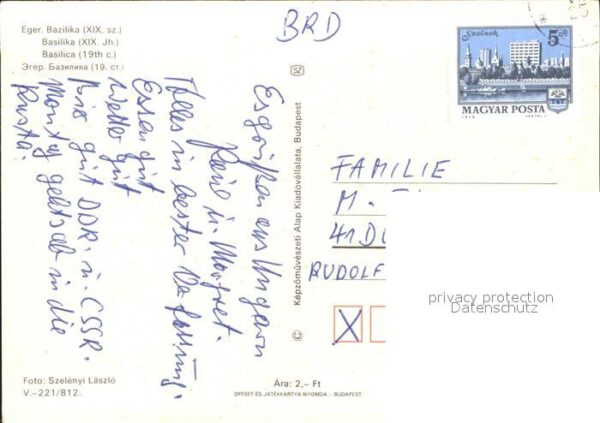 Eger. Bazilika (XIX. sz.)
Basilika (XIX. Jh.)
Basilica (19th c.)
Эгер. Базилика (19. ст.)
BRD
Szolnok
5 Ft
MAGYAR POSTA
Es grüßen aus Ungarn
Karl u. Margret.
Alles in bester Verfassung.
Essen gut
Wetter gut
Bier gut DDR. u. CSSR.
Montag geht's ab in die
Pusta.
© Képzőművészeti Alap Kiadóvállalata, Budapest
FAMILIE
M.
41 DU
RUDOLF
X
privacy protection
Datenschutz
Foto: Szelényi László
V.–221/812.
Ára: 2,– Ft
OFFSET ÉS JÁTÉKKÁRTYA NYOMDA – BUDAPEST